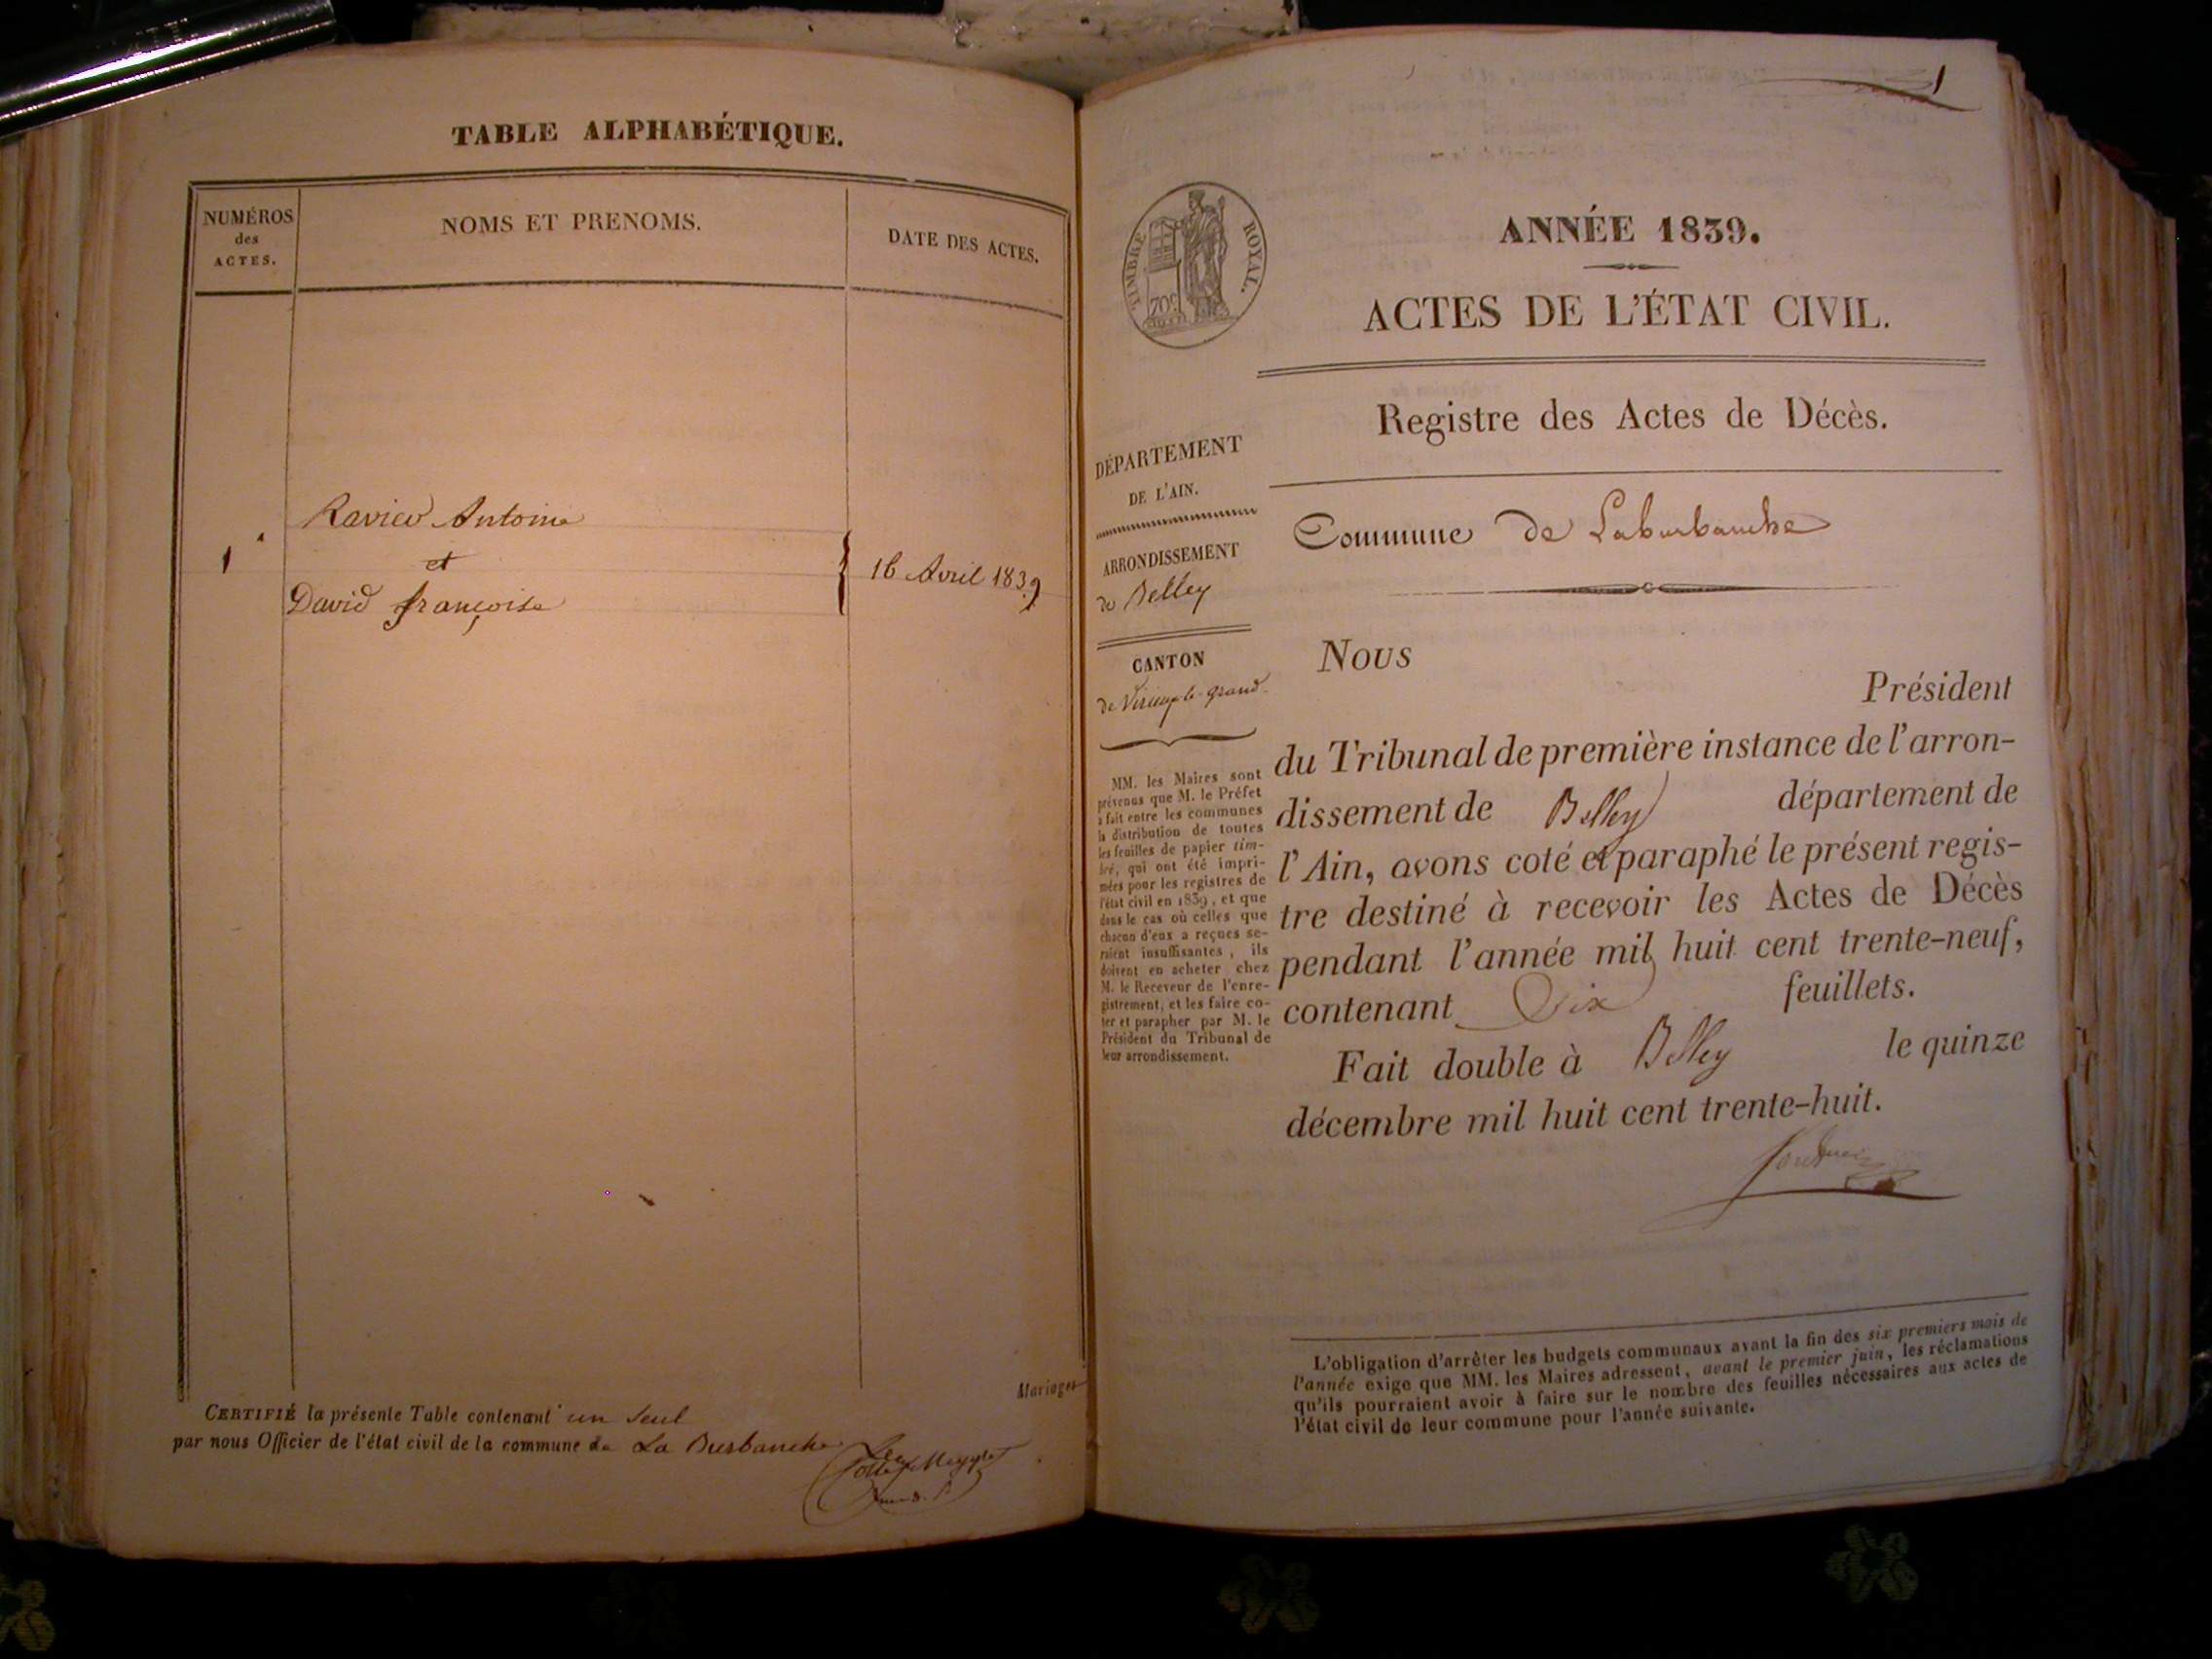 TABLE ALPHABÉTIQUE.
NUMÉROS
des
ACTES.
NOMS ET PRENOMS.
DATE DES ACTES.
Ravier Antoine
1
et
16 Avril 1839
David françoise
Mariages
CERTIFIÉ la présente Table contenant un seul
par nous Officier de l'état civil de la commune de La Burbanche
1
TIMBRE ROYAL.
70c
ANNÉE 1839.
ACTES DE L'ÉTAT CIVIL.
Registre des Actes de Décès.
DÉPARTEMENT
DE L'AIN.
ARRONDISSEMENT
de Belley
CANTON
de Virieu-le-grand
MM. les Maires sont
prévenus que M. le Préfet
a fait entre les communes
la distribution de toutes
les feuilles de papier tim-
bré, qui ont été impri-
mées pour les registres de
l'état civil en 1839, et que
dans le cas où celles que
chacun d'eux a reçues se-
raient insuffisantes, ils
doivent en acheter chez
M. le Receveur de l'enre-
gistrement, et les faire co-
ter et parapher par M. le
Président du Tribunal de
leur arrondissement.
Commune de Laburbanche
Nous
Président
du Tribunal de première instance de l'arron-
dissement de Belley département de
l'Ain, avons coté et paraphé le présent regis-
tre destiné à recevoir les Actes de Décès
pendant l'année mil huit cent trente-neuf,
contenant Six feuillets.
Fait double à Belley le quinze
décembre mil huit cent trente-huit.
L'obligation d'arrêter les budgets communaux avant la fin des six premiers mois de
l'année exige que MM. les Maires adressent, avant le premier juin, les réclamations
qu'ils pourraient avoir à faire sur le nombre des feuilles nécessaires aux actes de
l'état civil de leur commune pour l'année suivante.